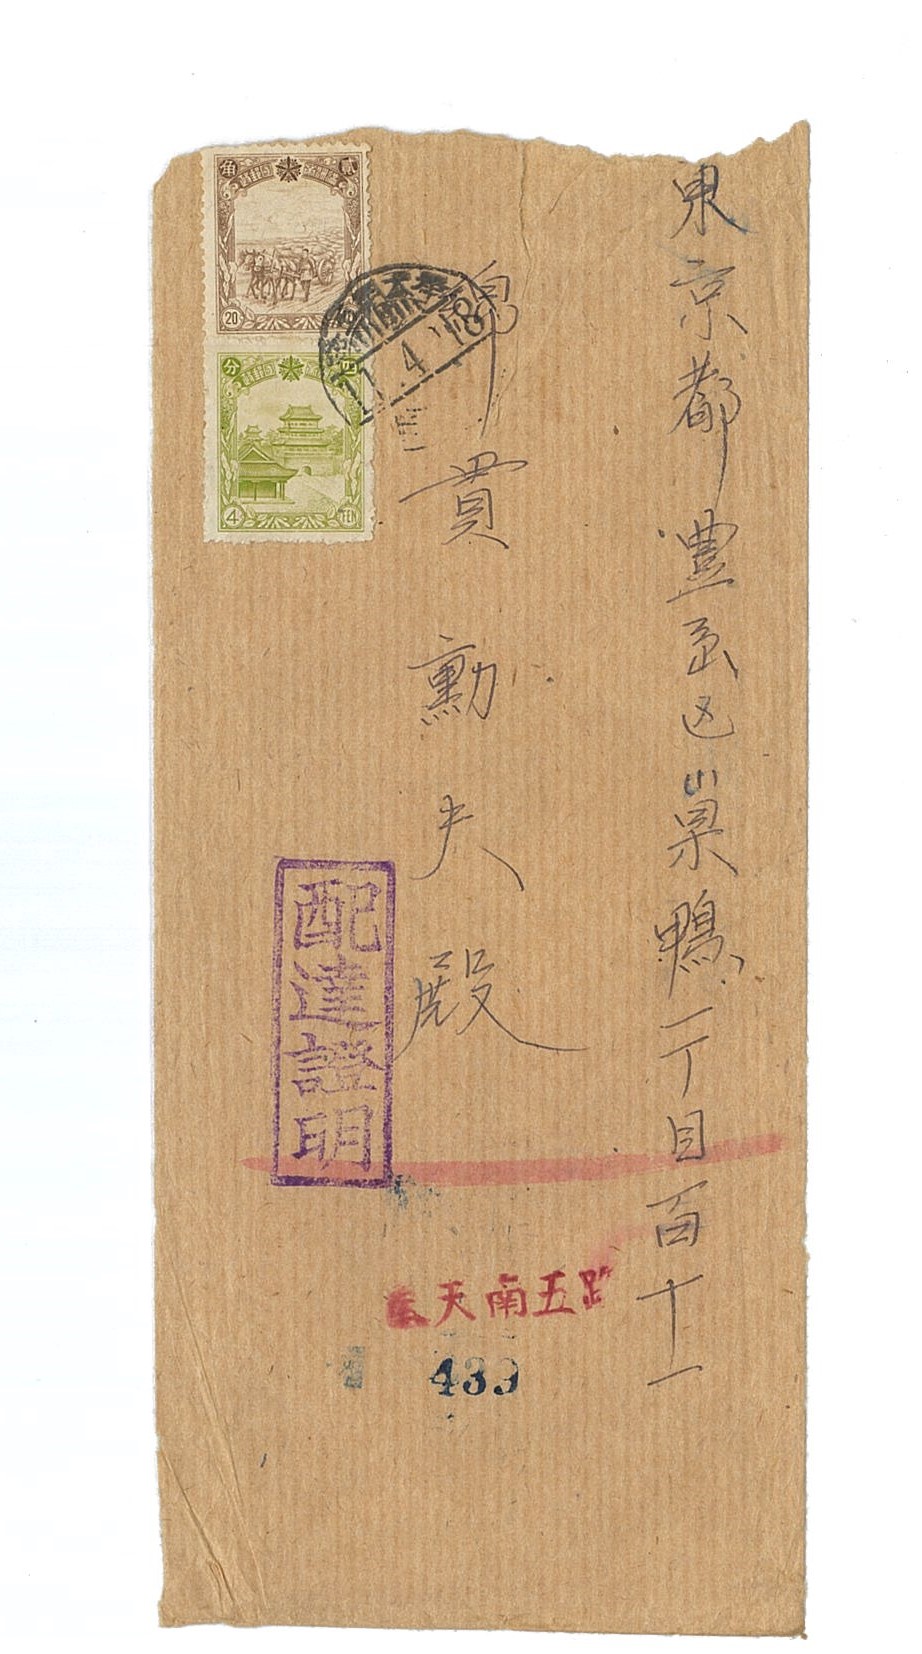 東京都豊島区巣鴨一丁目百十一
綿貫勲夫殿
配達證明
天南五路
433
貳
角
20
分
四
4
11.4.18